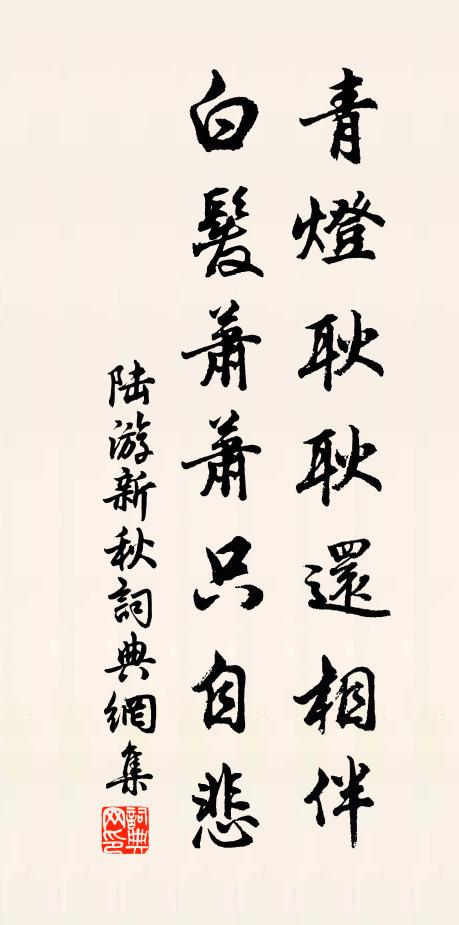 青燈耿耿還相伴
白髮蕭蕭只自悲
陸游新秋詞典網集
詞典網印